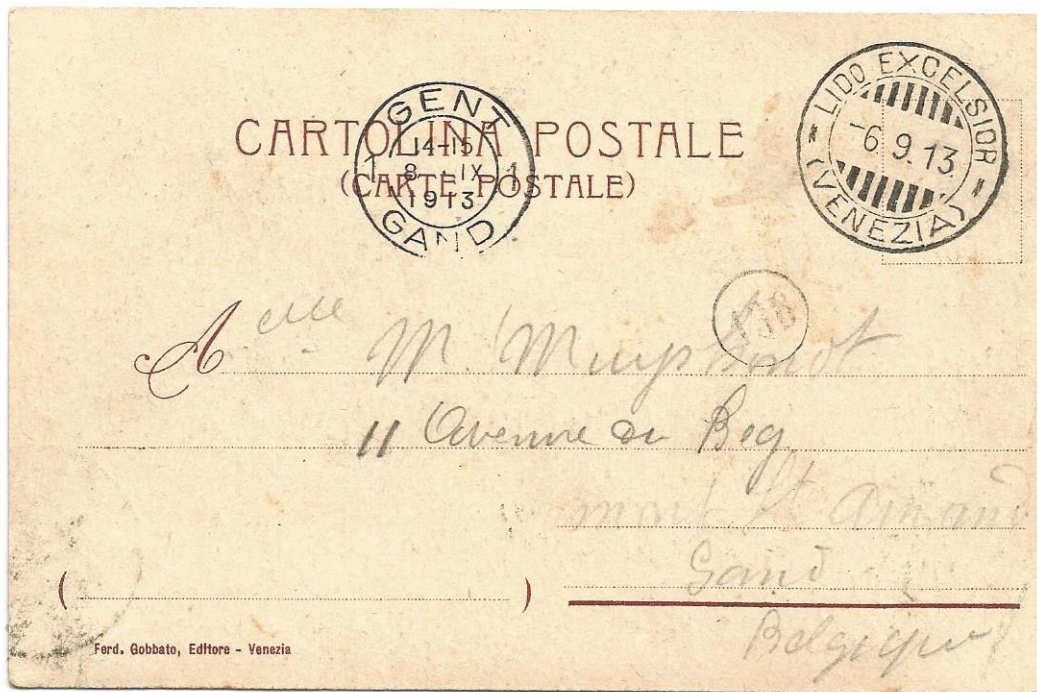 CARTOLINA POSTALE
(CARTE POSTALE)
GENT
14-15
1 8 - IX 1
1913
GAND
LIDO EXCELSIOR
-6.9.13.
(VENEZIA)
138
A elle M.
11 Avenue du
mont St Amand
Gand
Belgique
( )
Ferd. Gobbato, Editore - Venezia